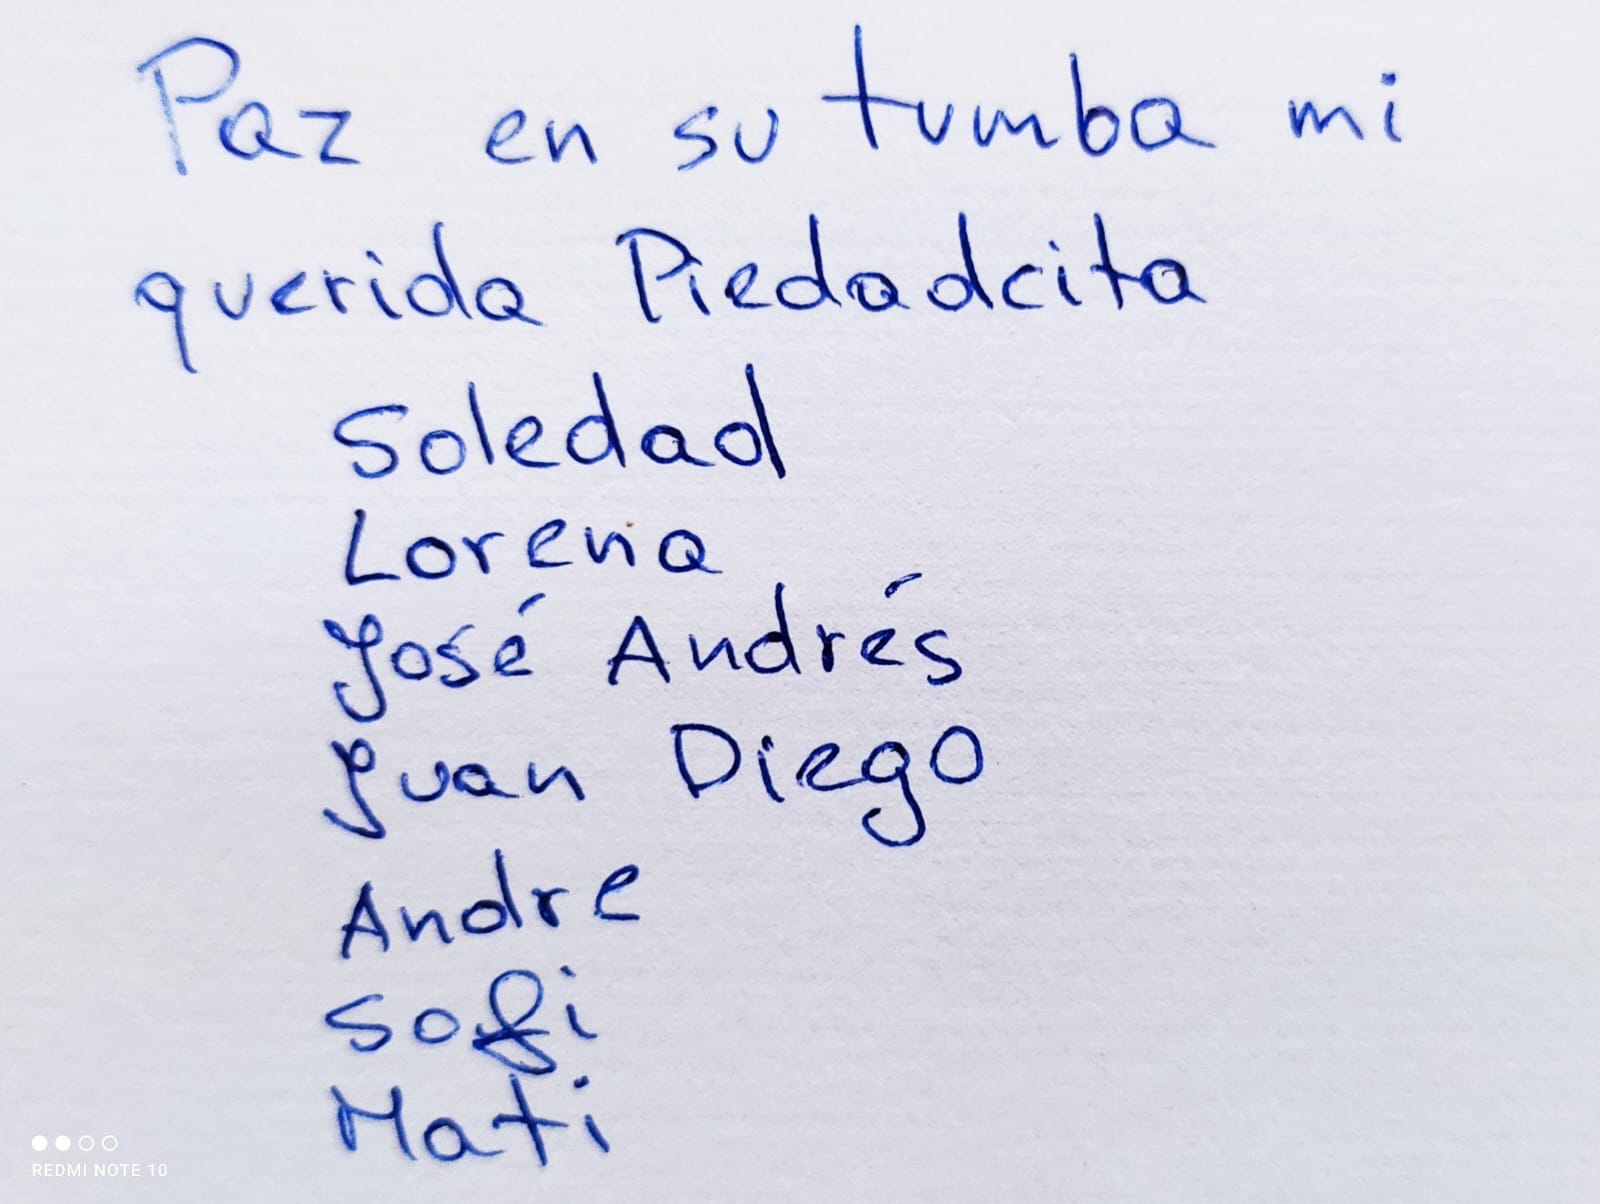 Paz en su tumba mi
querida Piedadcita
Soledad
Lorena
José Andrés
Juan Diego
Andre
Sofi
Mati
REDMI NOTE 10